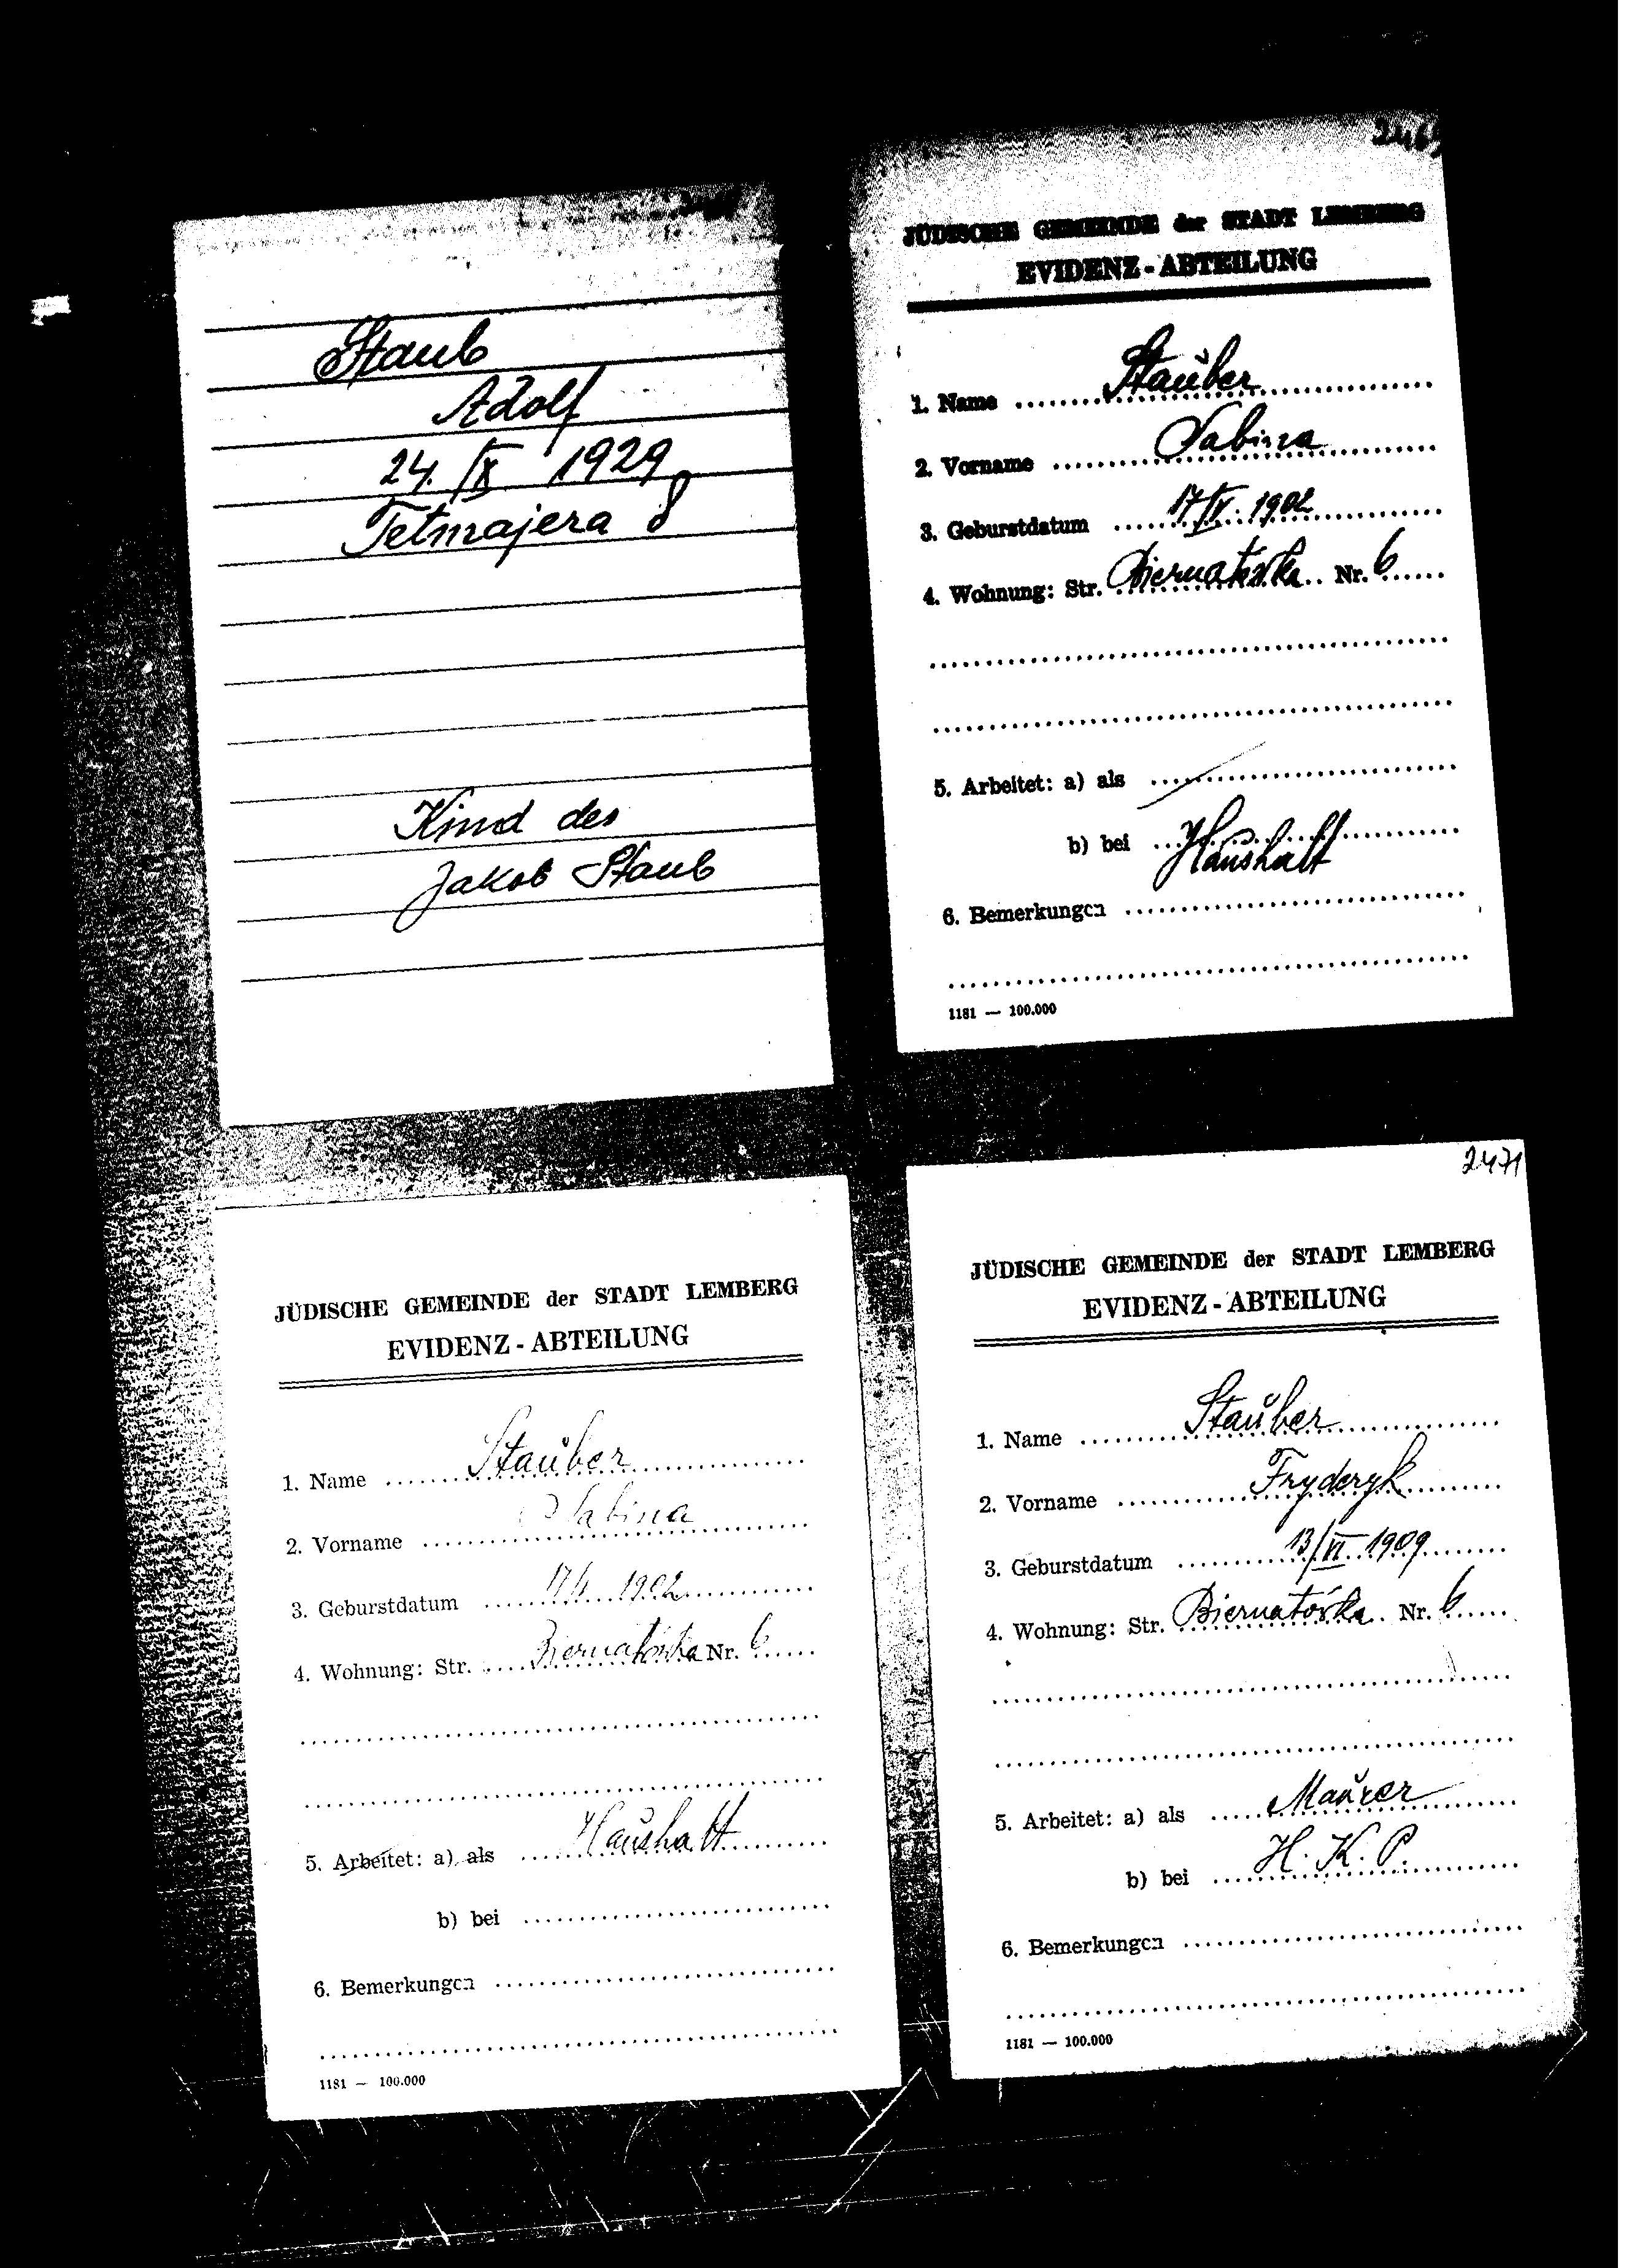 Staub
Adolf
24. IX 1929
Tetmajera 8
Kind des
Jakob Staub
JÜDISCHE GEMEINDE der STADT LEMBERG
EVIDENZ - ABTEILUNG
1. Name Staŭber
2. Vorname Sabina
3. Geburstdatum 17/IV. 1902
4. Wohnung: Str. Biernatońska Nr. 6
5. Arbeitet: a) als
b) bei Haushalt
6. Bemerkungen
1181 — 100.000
JÜDISCHE GEMEINDE der STADT LEMBERG
EVIDENZ - ABTEILUNG
1. Name Staŭber
2. Vorname Sabina
3. Geburstdatum 1902
4. Wohnung: Str. Biernatońska Nr. 6
5. Arbeitet: a) als Haŭshalt
b) bei
6. Bemerkungen
1181 — 100.000
2471
JÜDISCHE GEMEINDE der STADT LEMBERG
EVIDENZ - ABTEILUNG
1. Name Staŭber
2. Vorname Fryderyk
3. Geburstdatum 13/VI. 1909
4. Wohnung: Str. Biernatońska Nr. 6
5. Arbeitet: a) als Maŭrer
b) bei H. K. P.
6. Bemerkungen
1181 — 100.000